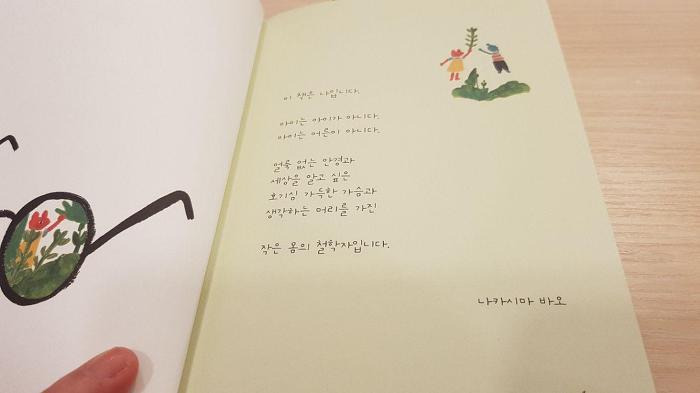 이 책은 나입니다.
아이는 아이가 아니다.
아이는 어른이 아니다.
얼룩 없는 안경과
세상을 알고 싶은
호기심 가득한 가슴과
생각하는 머리를 가진
작은 몸의 철학자입니다.
나카시마 바오